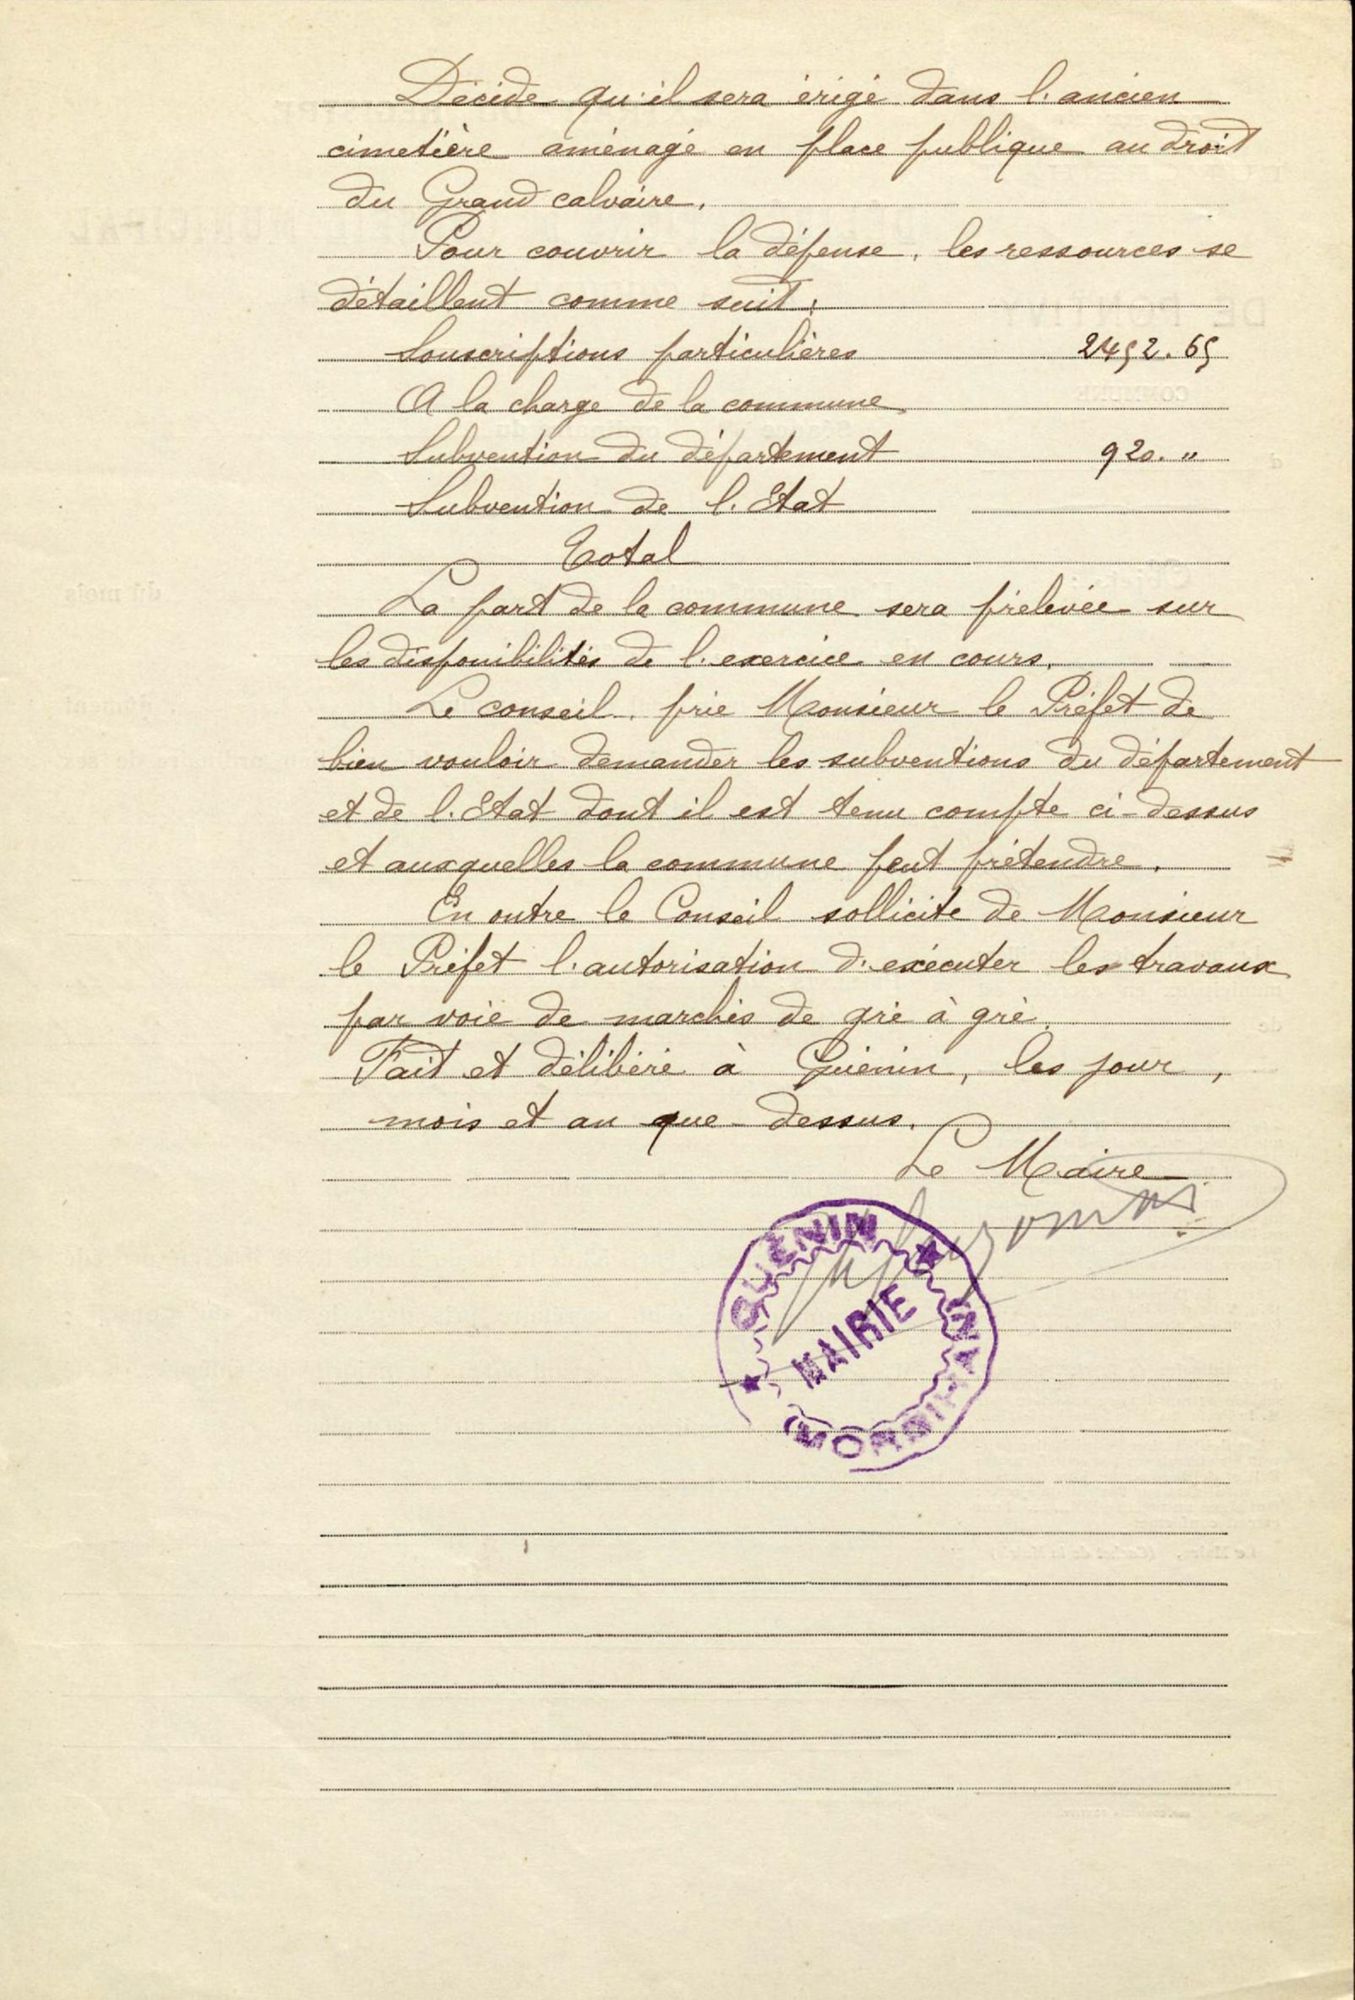 Décide qu'il sera érigé dans l'ancien
cimetière aménagé en place publique au droit
du Grand calvaire.
Pour couvrir la dépense, les ressources se
détaillent comme suit,
Souscriptions particulières 2452.65
A la charge de la commune
Subvention du département 920. "
Subvention de l'Etat
Total
La part de la commune sera prélevée sur
les disponibilités de l'exercice en cours.
Le conseil prie Monsieur le Préfet de
bien vouloir demander les subventions du département
et de l'Etat dont il est tenu compte ci-dessus
et auxquelles la commune peut prétendre.
En outre le Conseil sollicite de Monsieur
le Préfet l'autorisation d'exécuter les travaux
par voie de marchés de gré à gré.
Fait et délibéré à Guénin, les jour,
mois et an que dessus.
Le Maire
GUÉNIN
MAIRIE
MORBIHAN